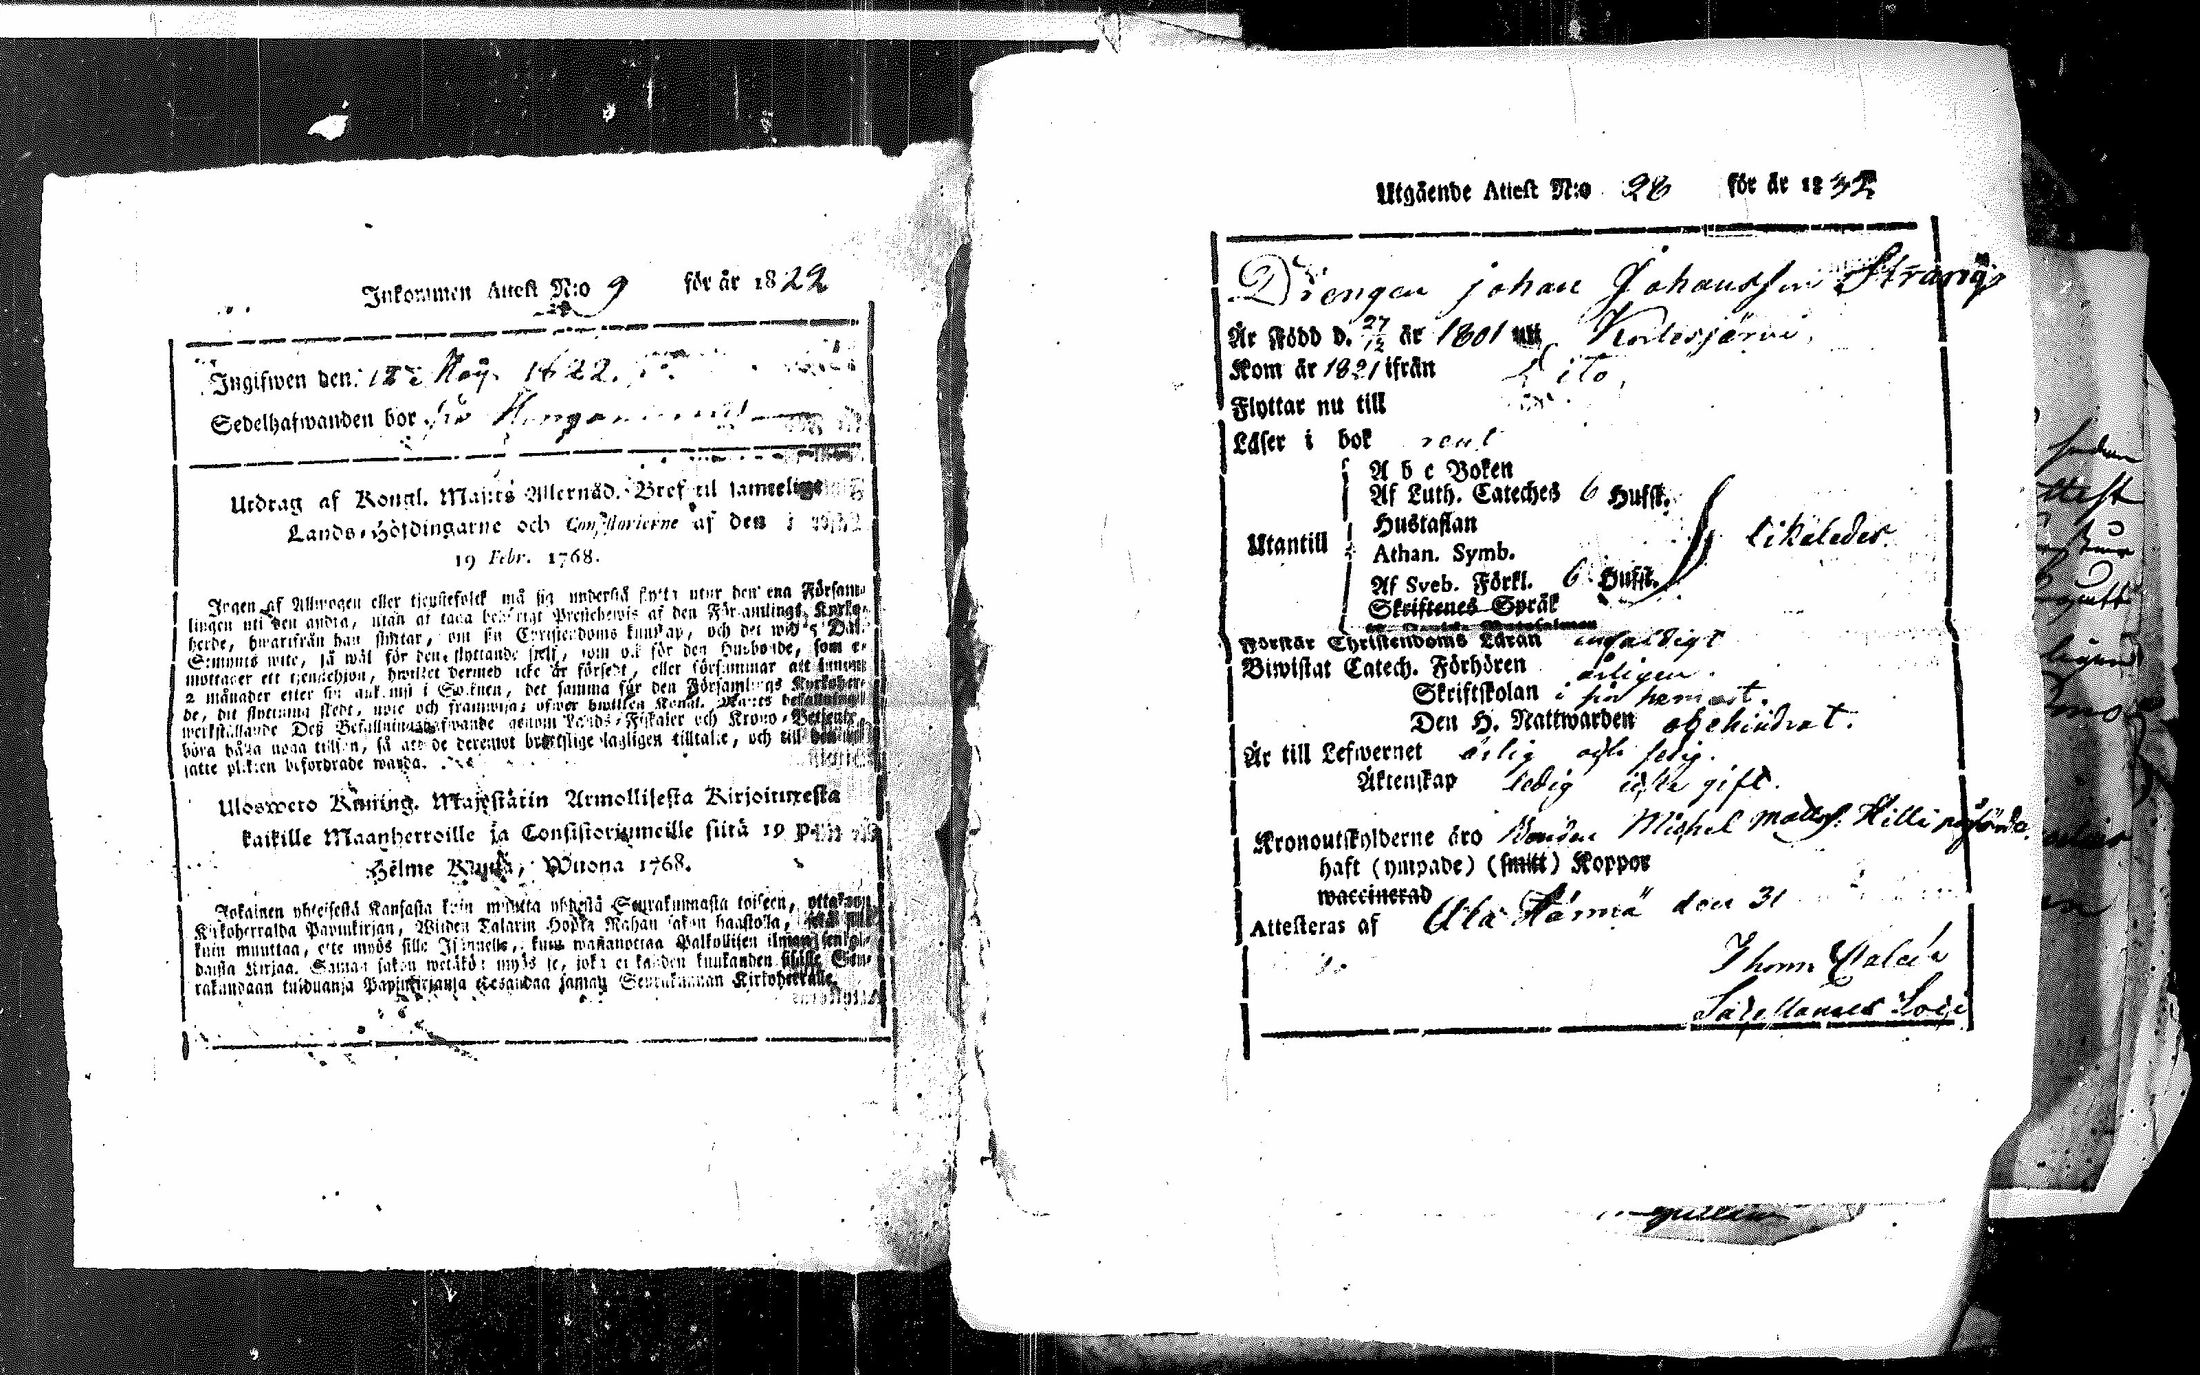 Inkommen Attest N:o 9 för år 1822
Ingifwen den 12 Maij 1822.
Sedelhafwanden bor
Utdrag af Kongl. Maj:ts Allernåd. Bref til samtelige
Lands-Höfdingarne och Consistorierne af den
19 Febr. 1768.
Ingen af Allmogen eller tjenstefolck må sig understå flytta utur den ena Försam-
lingen uti den andra, utan at taga behörigt Prestebewis af den Församlings Kyrko-
herde, hwarifrån han flyttar, om sin Christendoms kunskap, och det wid 5 Dal.
S:mynts wite, så wäl för den flyttande sielf, som ock för den Husbonde, som e-
mottager ett tjenstehjon, hwilket dermed icke är försedt, eller försummar att innom
2 månader efter sin ankomst i Socknen, det samma för den Församlings Kyrkoher-
de, dit flyttning skedt, upte och framwisa; öfwer hwilken Kongl. Maj:ts befallning
werkställande Deß Befallningshafwande genom Lands-Fiskaler och Krono-Betjente
böra hålla noga tillsyn, så att de deremot brottslige lagligen tilltalte, och till
satte plikten befordrade warda.
Ulosweto Kuning. Majestätin Armollisesta Kirjoituxesta
kaikille Maanherroille ja Consistoriumeille siitä 19 p:nä
Helme Kuuta, Wuona 1768.
Jokainen yhteisestä Kansasta kuin muutta yhdestä Seurakunnasta toiseen, ottakaan
Kirkoherralda Papinkirjan, Wijden Talarin Hopia Rahan sakon haastolla,
kuin muuttaa, ette myös sille Isännelle, kuin wastanottaa Palkollisen ilman senkal-
daista Kirjaa. Saman sakon wetäkön myös se, joka ei kahden kuukauden sisälle Seu-
rakundaan tulduansa Papinkirjansa edesandaa saman Seurakunnan Kirkoherralle.
Utgående Attest N:o 28 för år 1832
Drengen Johan Johansson Strang
Är Född d. 27/12 år 1801 uti Kortesjärvi,
Kom år 1821 ifrån Dito,
Flyttar nu till
Läser i bok rent
A b c Boken
Af Luth. Cateches 6 Hufst.
Hustaflan
Utantill Athan. Symb. likaledes
Af Sveb. Förkl. 6 Hufst.
Skriftenes Språk
Förstår Christendoms Läran enfaldigt
Biwistat Catech. Förhören årligen.
Skriftskolan i sin hemort.
Den H. Nattwarden obehindrat.
Är till Lefwernet ärlig och sedig.
Äktenskap ledig icke gift.
Kronoutskylderne äro Bonden Michel Mattss. Hilli påförde.
haft (ympade) (smitt) Koppor
waccinerad
Attesteras af Ala Härmä den 31